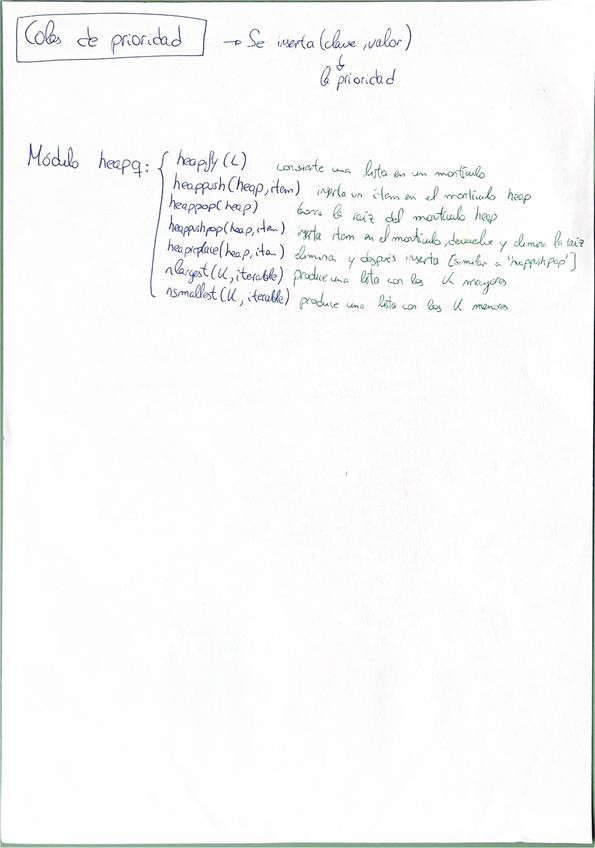 Colas de prioridad → Se inserta (clave, valor)
↓
la prioridad
Módulo heapq: { heapify (L) convierte una lista en un montículo
heappush (heap, item) inserta un item en el montículo heap
heappop (heap) borra la raíz del montículo heap
heappushpop (heap, item) inserta item en el montículo, devuelve y elimina la raíz
heapreplace (heap, item) elimina y después inserta [similar a 'heappushpop']
nlargest (K, iterable) produce una lista con los K mayores
nsmallest (K, iterable) produce una lista con los K menores